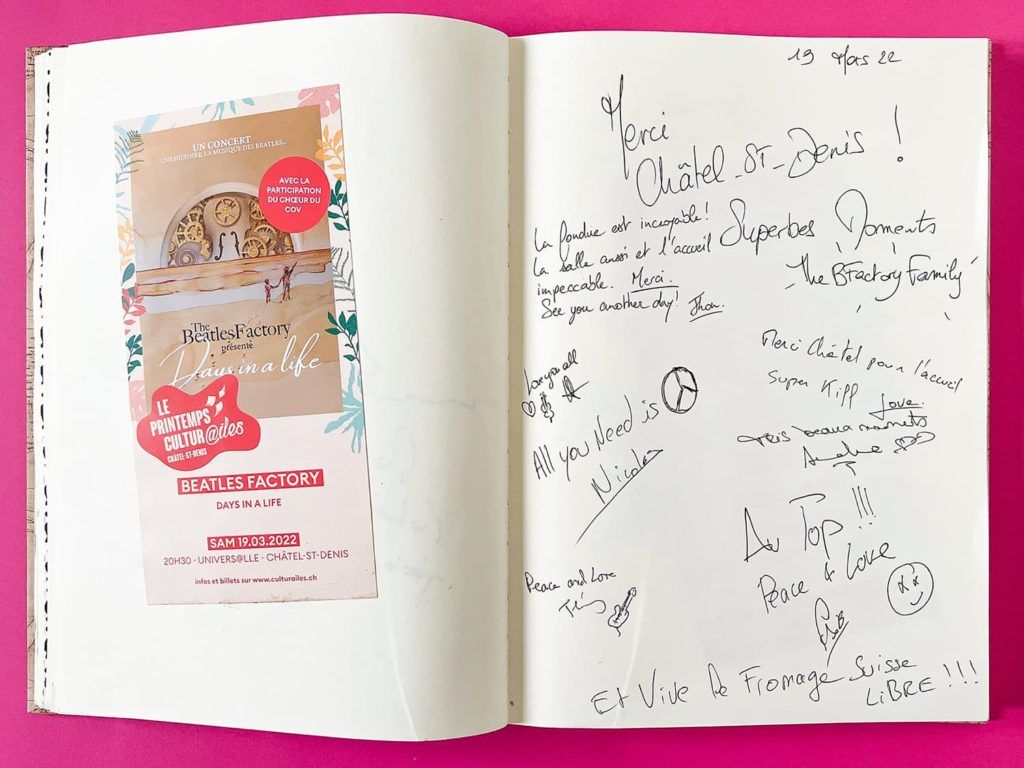 UN CONCERT
UNE HISTOIRE, LA MUSIQUE DES BEATLES...
AVEC LA
PARTICIPATION
DU CHŒUR DU
COV
The
BeatlesFactory
présente
Days in a life
LE
PRINTEMPS
CULTUR@ILES
CHÂTEL-ST-DENIS
BEATLES FACTORY
DAYS IN A LIFE
SAM 19.03.2022
20H30 · UNIVERS@LLE · CHÂTEL-ST-DENIS
infos et billets sur www.culturailes.ch
19 Mars 22
Merci
Châtel-St-Denis !
Superbes Moments
The BFactory Family
La fondue est incroyable!
La salle aussi et l'accueil
impeccable. Merci.
See you another day!
Merci Châtel pour l'accueil
Super Kiff
Love.
Love you all
All you Need is
Nicolas
très beaux moments
Au Top !!!
Peace & Love
Peace and Love
Et Vive Le Fromage Suisse
LiBRE !!!